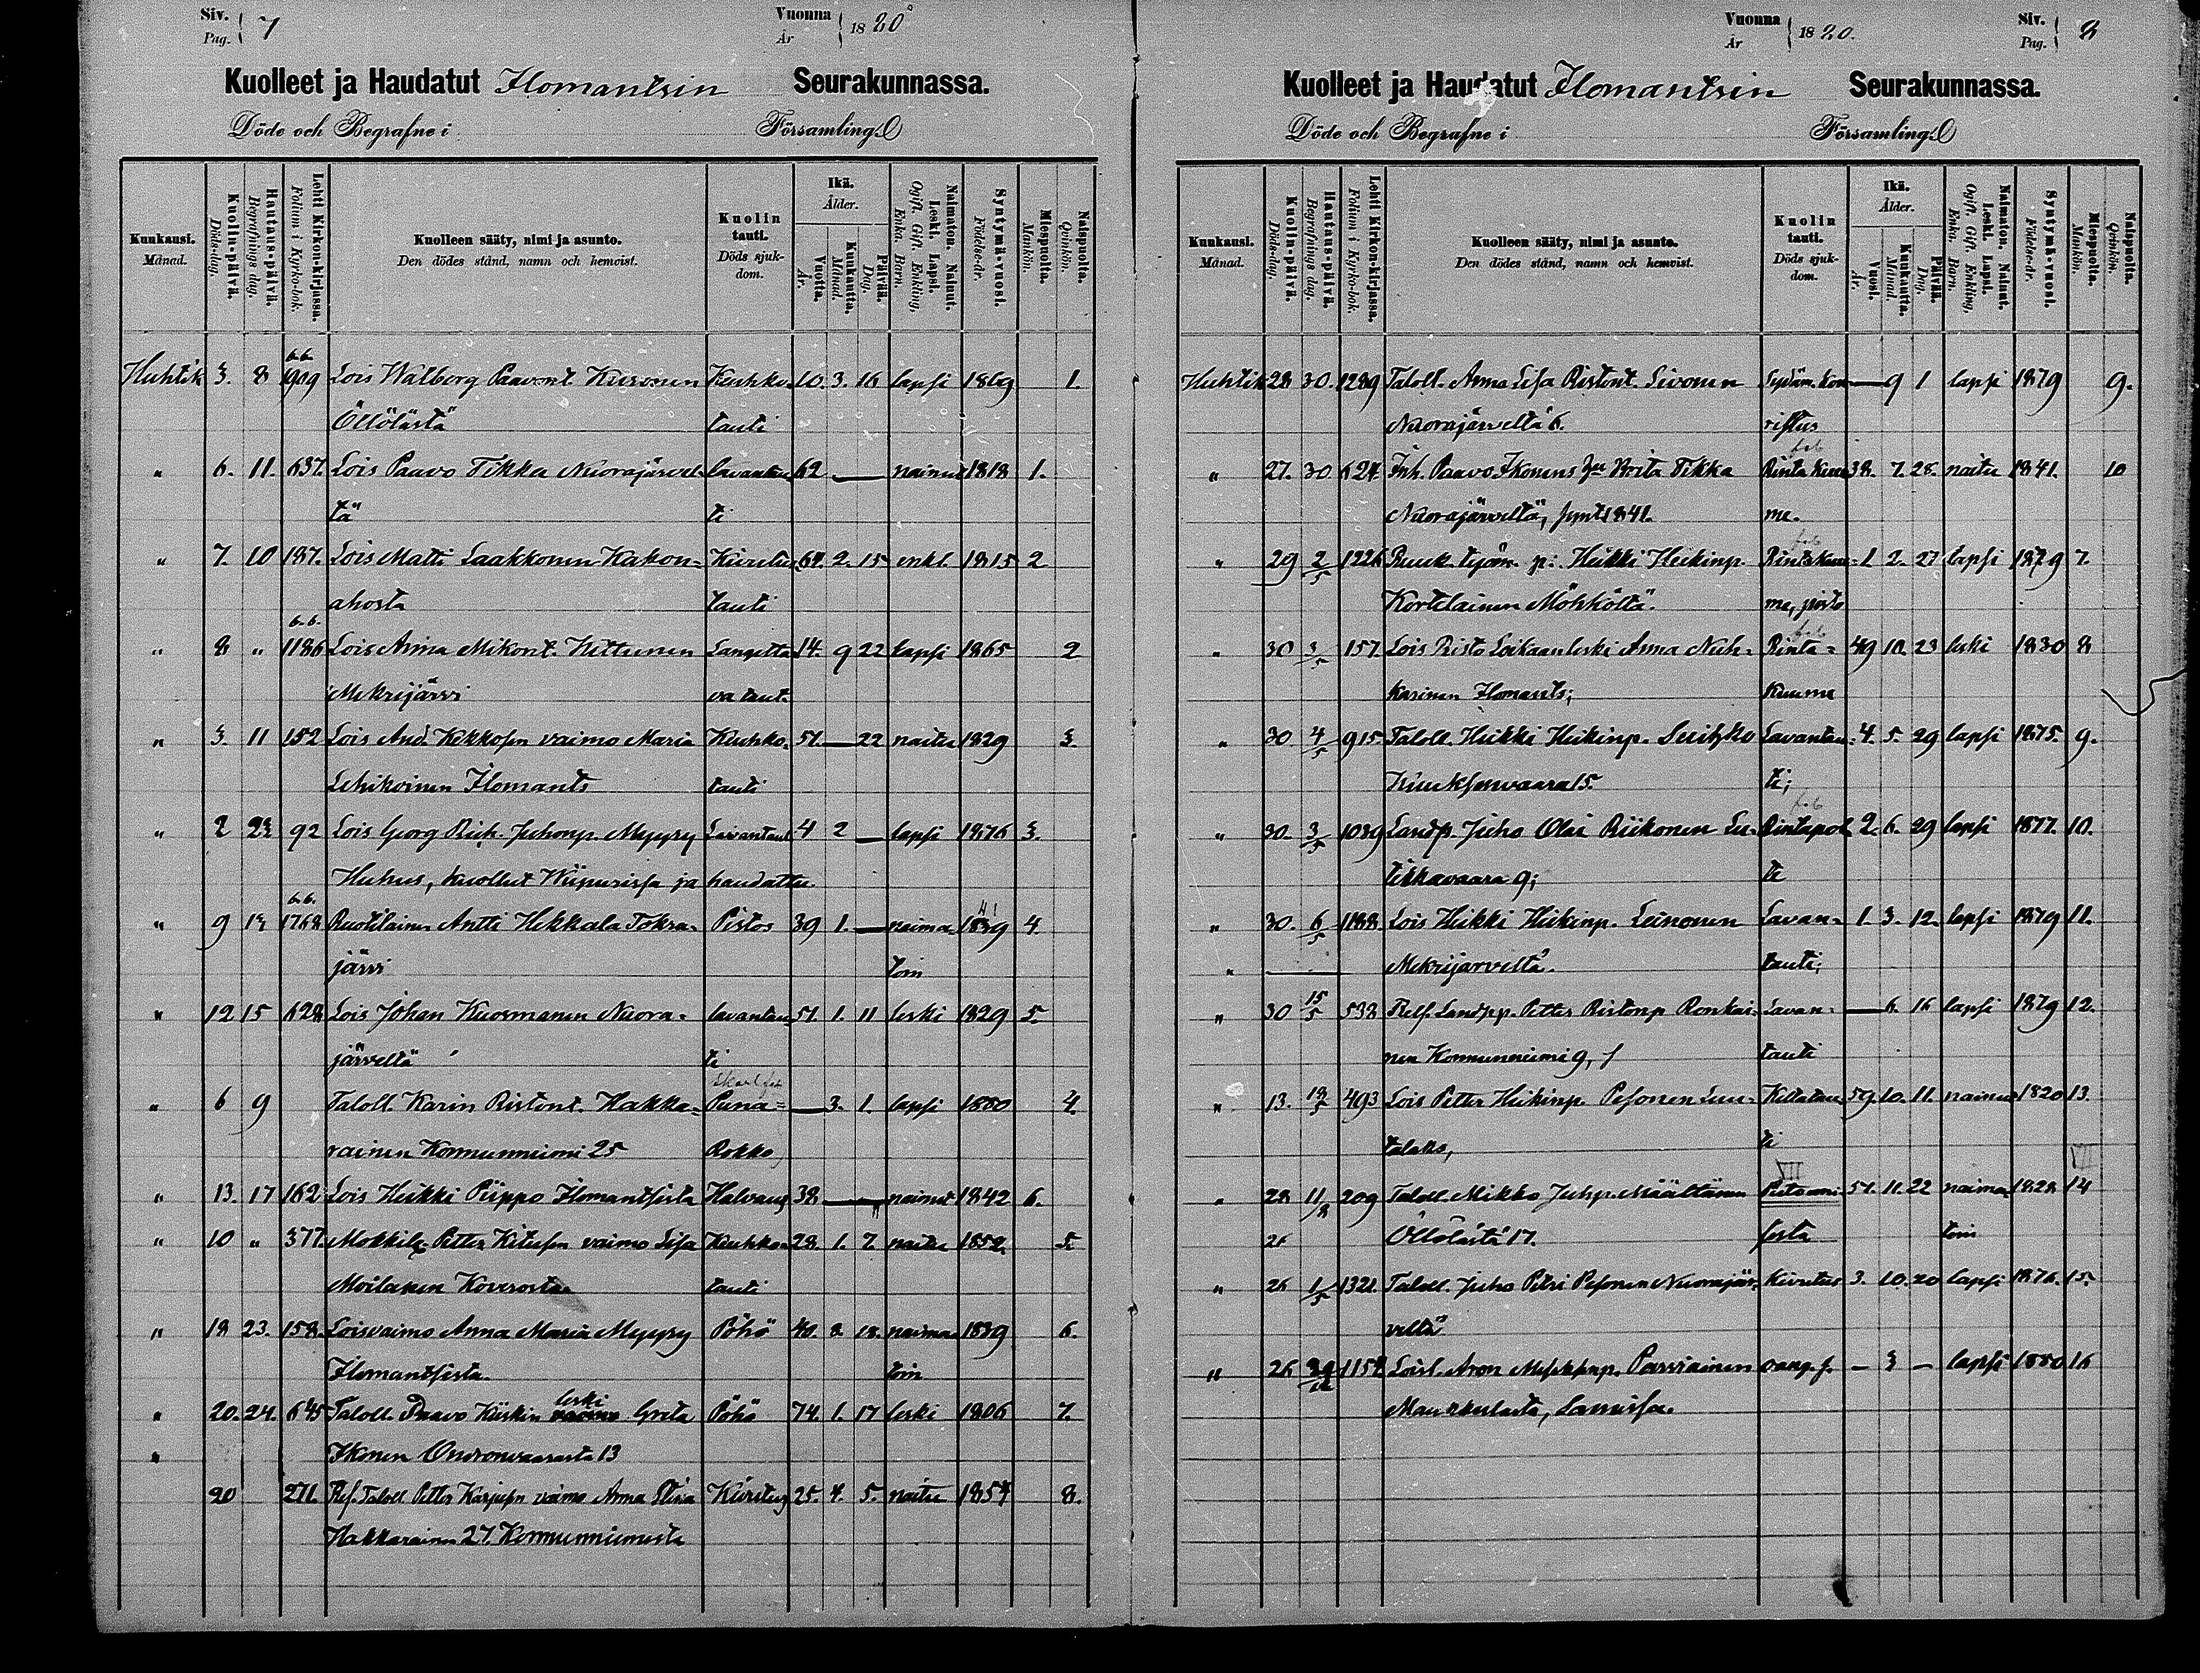 Siv. Pag. 7 Vuonna År 1880
Kuolleet ja Haudatut Ilomantsin Seurakunnassa.
Döde och Begrafne i Församling.
Kuukausi. Månad. Kuolin-päivä. Döds-dag. Hautaus-päivä. Begrafnings dag. Lehti Kirkon-kirjassa. Folium i Kyrko-bok. Kuolleen sääty, nimi ja asunto. Den dödes stånd, namn och hemvist. Kuolin tauti. Döds sjuk-dom. Ikä. Ålder. Vuotta. År. Kuukautta. Månad. Päivää. Dag. Naimaton. Nainut. Leski. Lapsi. Ogift. Gift. Enkling, Enka. Barn. Syntymä-vuosi. Födelse-år. Miespuolta. Mankön. Naispuolta. Qvinkön.
Huhtik 3. 8 909 Lois Walborg Paavont. Kuronen Keuhko- 10. 3. 16 lapsi 1869 1.
Öllölästä tauti
" 6. 11. 637. Lois Paavo Tikka Nuorajärvel- lavantau 62 — nainut 1818 1.
tä ti
" 7. 10 187. Lois Matti Laakkonen Kakon- Kuvetus 64. 2. 15 enkl. 1815 2
ahosta tauti
" 8 " 1186 Lois Anna Mikont. Hettunen Langetta 14. 9 22 lapsi 1865 2
Mekrijärvi va taut.
" 3. 11 152 Lois And. Kokkosen vaimo Maria Keuhko- 51. — 22 naitu 1829 3.
Lehikoinen Ilomants tauti
" 2 92 Lois Georg Juhonp. Myyry Lavantaut 4 2 — lapsi 1876 3.
Huhus, kuollut Wiipurissa ja haudattu.
" 9 1768 Ruotilainen Antti Hekkala Tokra- Pistos 39 1. — naima- 1839 4.
järvi toin
" 12 15 628 Lois Johan Kuosmanen Nuora- lavantau 51. 1. 11 leski 1829 5.
järveltä ti
" 6 9 Taloll. Karin Ristont. Hakka- Puna- — 3. 1. lapsi 1880 4.
rainen Kornunniemi 25 Rokko
" 13. 17 162 Lois Heikki Piippo Ilomantsista Halvaus 38 — nainut 1842 6.
" 10 " 377. Petter vaimo Lisa Keuhko- 28. 1. 7. naitu 1852. 5.
Moilanen Koverosta tauti
" 18 23. 158. Loisvaimo Anna Maria Myyry Pöhö 40. 8. 18. naima 1839 6.
Ilomantsista. toin
" 20. 24. 645 Taloll. Paavo Kiiskin leski Greta Pöhö 74. 1. 17 leski 1806 7.
" Ikonen Onsronvaarasta 13
20 271. Ref. Taloll Petter Karjusen vaimo Anna Stina Kuvetus 25. 4. 5. naitu 1854 8.
Hakkarainen 27. Kornunniemestä
Vuonna År 1880. Siv. Pag. 8
Kuolleet ja Haudatut Ilomantsin Seurakunnassa.
Döde och Begrafne i Församling.
Kuukausi. Månad. Kuolin-päivä. Döds-dag. Hautaus-päivä. Begrafnings dag. Lehti Kirkon-kirjassa. Folium i Kyrko-bok. Kuolleen sääty, nimi ja asunto. Den dödes stånd, namn och hemvist. Kuolin tauti. Döds sjuk-dom. Ikä. Ålder. Vuosi. År. Kuukautta. Månad. Päivää. Dag. Naimaton. Nainut. Leski. Lapsi. Ogift. Gift. Enkling, Enka. Barn. Syntymä-vuosi. Födelse-år. Miespuolta. Mankön. Naispuolta. Qvinkön.
Huhtik 28 30. 1289 Taloll. Anna Lisa Ristont. Sivonen Sydäm. Kou — 9 1 lapsi 1879 9.
Nuorajärveltä 6. ristus
" 27. 30. 624. Inh. Paavo Ikonens Brita Tikka Rinta kuu 38. 7. 28. naitu 1841. 10
Nuorajärveltä, synt. 1841. me.
" 29 2/5 1226 Ruuk. työm. p: Heikki Heikinp. Rintakuu- 1 2. 27 lapsi 1879 7.
Kortelainen Möhköltä. me, pisto
" 30 3/5 157. Lois Risto Loikaan leski Anna Nuh- Rinta- 49 10. 23 leski 1830 8
karinen Ilomants; Kuume
" 30 4/5 915 Taloll. Heikki Heikinp. Lavantau- 4. 5. 29 lapsi 1875. 9.
Kuuksenvaara 15. ti;
" 30. 3/5 1039 Landp. Juho Olli Riikonen Lu- Rintapol 2. 6. 29 lapsi 1877. 10.
tikkavaara 9; te
" 30. 6/5 1188. Lois Heikki Heikinp. Leinonen Lavan- 1. 3. 12. lapsi 1879 11.
" — Mekrijarveltä. tauti;
" 30 15/5 538 Landpp. Petter Ristonp Ronkai- Lavan- — 6. 16 lapsi 1879 12.
nen Kornunniemi 9, tauti
" 13. 493 Lois Petter Heikinp. Pesonen Luu- Keltatau 59. 10. 11. nainut 1820 13.
talaks, ti
" 28 11/8 209 Taloll. Mikko Juhp. Määttänen 51. 11. 22 naima 1828 14
26 Öllölästä 17. sesta toin
" 26 1/5 1321. Taloll. Juho Petri Pesonen Nuorajär- Kuvetus 3. 10. 20 lapsi 1876. 15.
veltä
" 26 1154 Loisl. Aron Parviainen — 3 — lapsi 1880 16